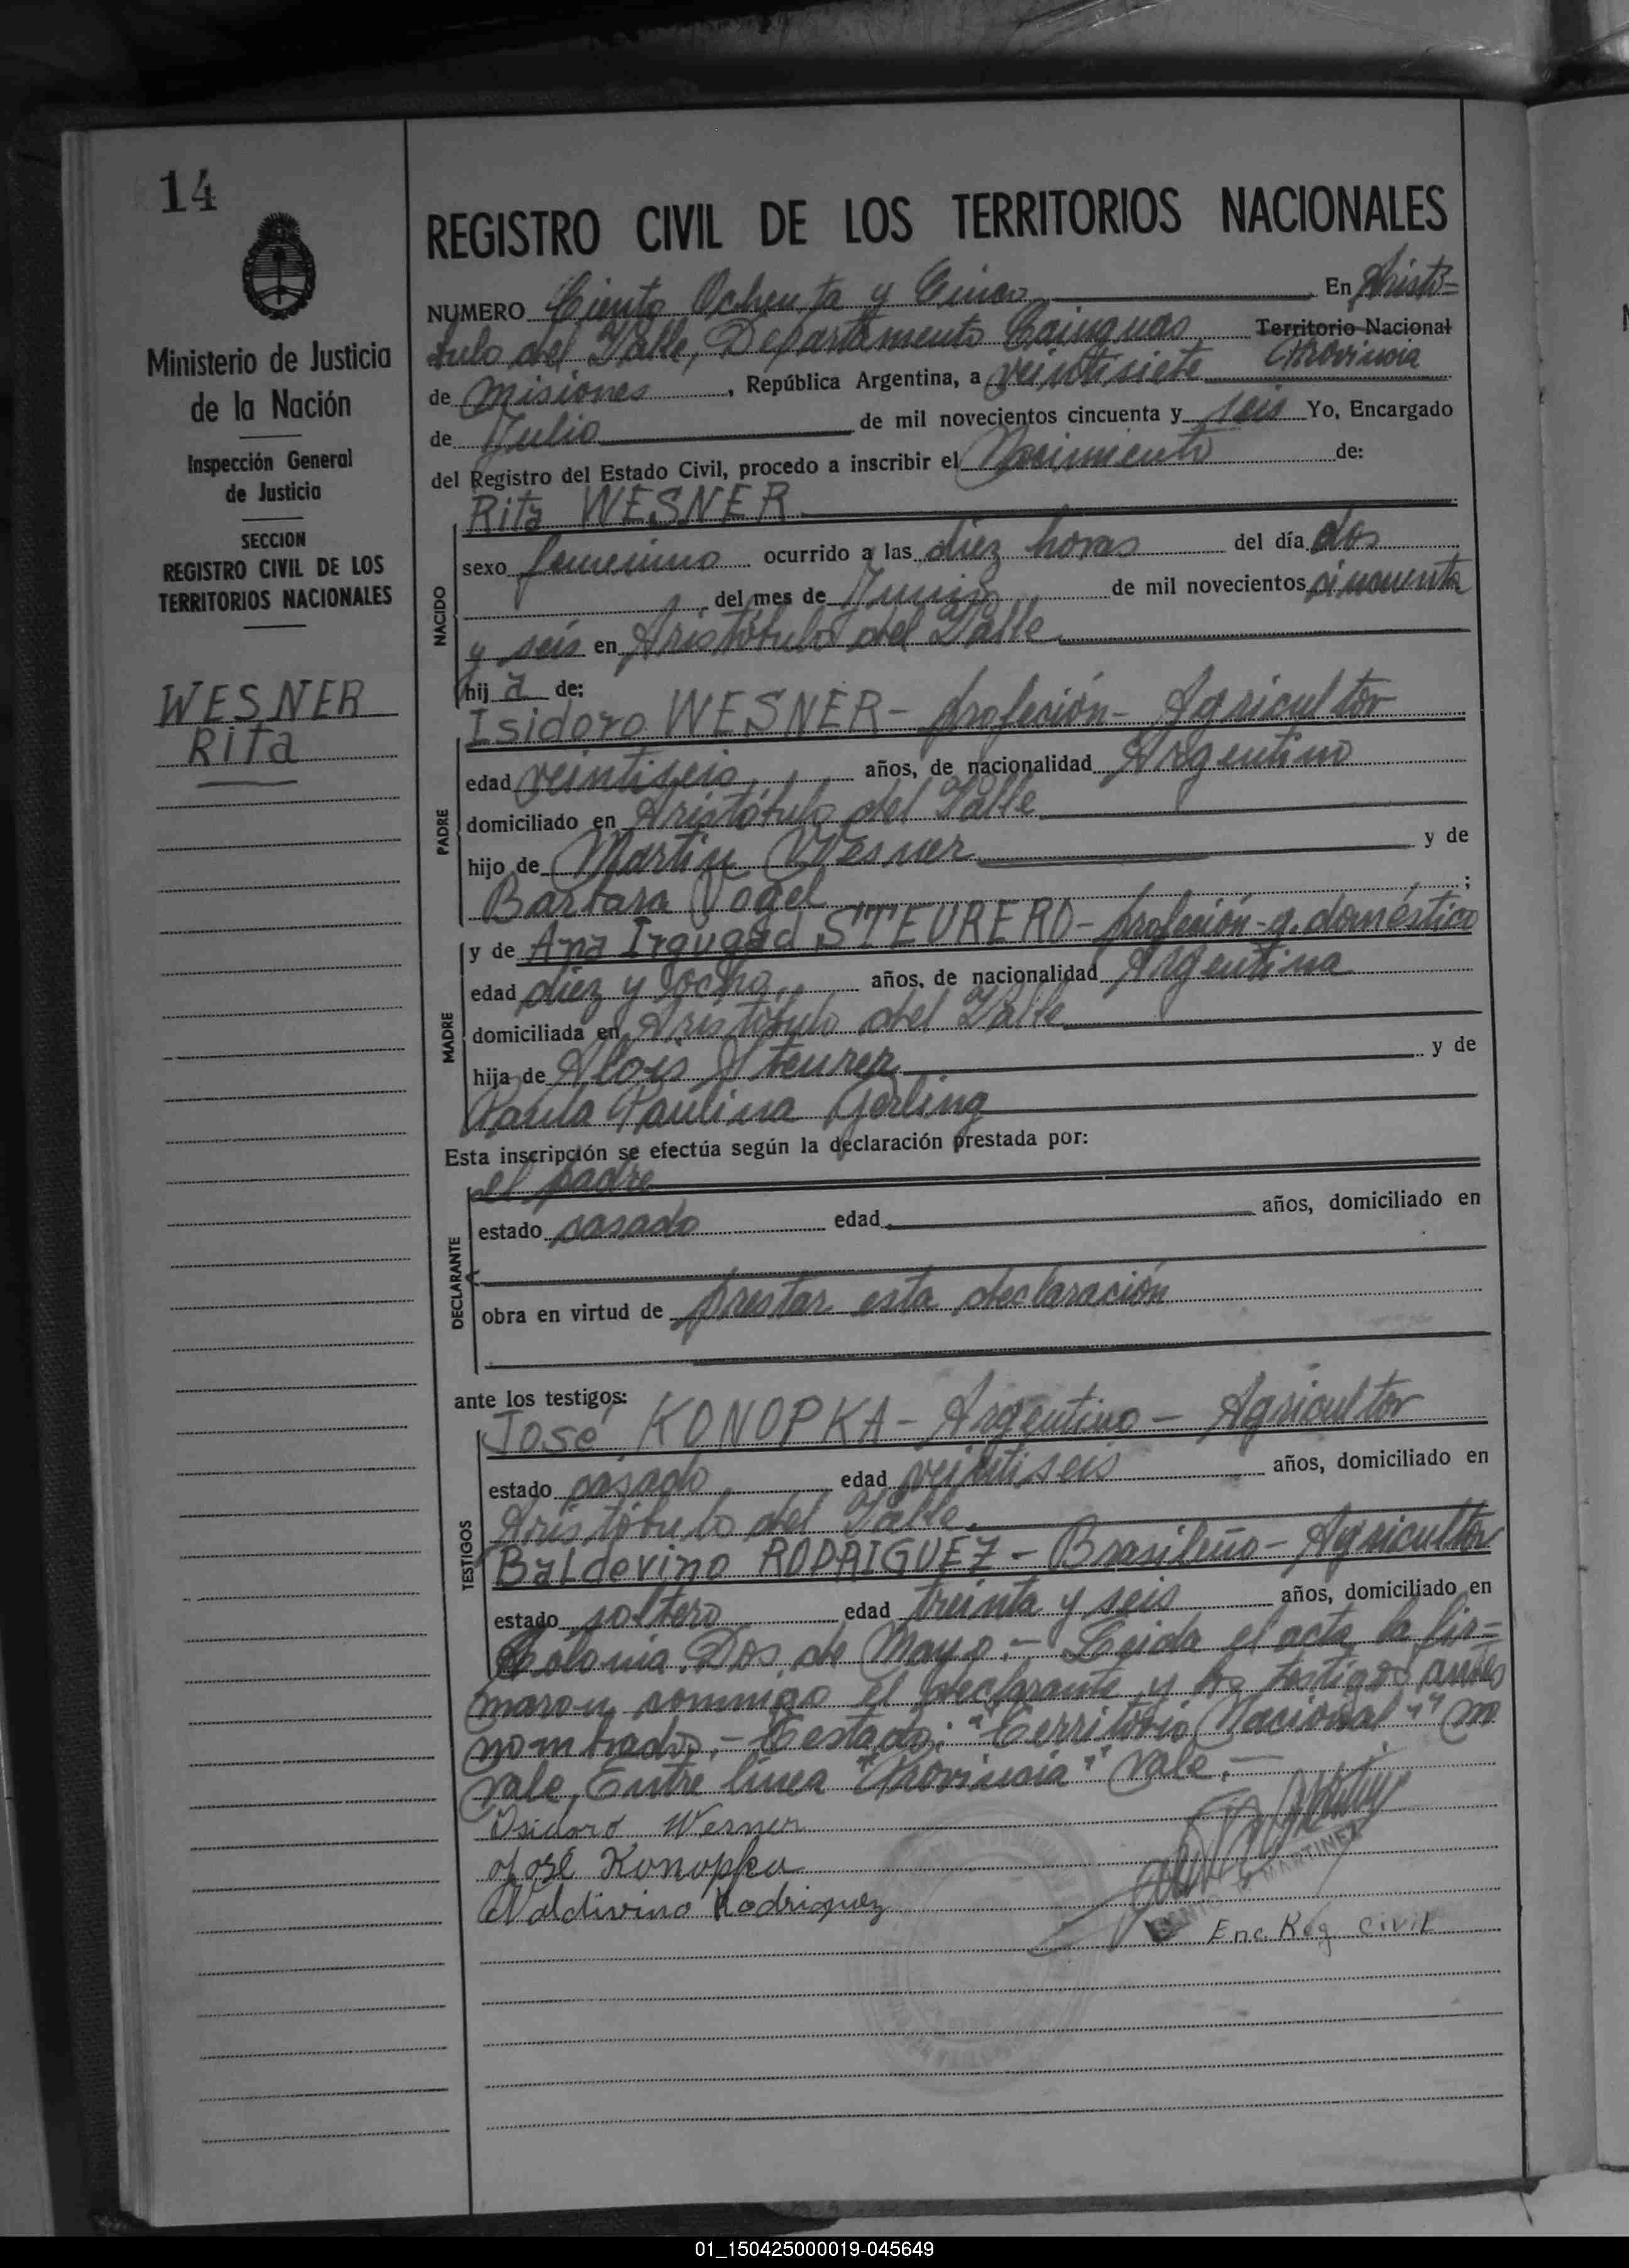 14
REGISTRO CIVIL DE LOS TERRITORIOS NACIONALES
Ministerio de Justicia
de la Nación
Inspección General
de Justicia
SECCION
REGISTRO CIVIL DE LOS
TERRITORIOS NACIONALES
WESNER
Rita
NUMERO Ciento Ochenta y Cinco En Aristó=
bulo del Valle, Departamento Cainguas Territorio Nacional
Provincia
de Misiones, República Argentina, a veintisiete
de Julio de mil novecientos cincuenta y seis Yo, Encargado
del Registro del Estado Civil, procedo a inscribir el Nacimiento de:
NACIDO
Rita WESNER
sexo femenino ocurrido a las diez horas del día dos
del mes de Junio de mil novecientos cincuenta
y seis en Aristóbulo del Valle
hij a de:
PADRE
Isidoro WESNER - profesión - Agricultor
edad veintiseis años, de nacionalidad Argentino
domiciliado en Aristóbulo del Valle
hijo de Martin Wesner y de
Barbara Vogel ;
MADRE
y de Ana STEURERD - profesión - q. doméstico
edad diez y ocho años, de nacionalidad Argentina
domiciliada en Aristóbulo del Valle
hija de Alois Steurer y de
Paula Paulina Gerling
Esta inscripción se efectúa según la declaración prestada por:
DECLARANTE
el padre
estado casado edad años, domiciliado en
obra en virtud de prestar esta declaración
ante los testigos:
TESTIGOS
José KONOPKA - Argentino - Agricultor
estado casado edad veintiseis años, domiciliado en
Aristóbulo del Valle
Baldevino RODRIGUEZ - Brasileño - Agricultor
estado soltero edad treinta y seis años, domiciliado en
Colonia Dos de Mayo.- Leida el acta la fir=
maron conmigo el declarante y los testigos antes
nombrados.- Testado: "Territorio Nacional" no
vale, Entre linea "Provincia" vale.-
Isidoro Wesner
José Konopka
Valdivino Rodriguez
MARTINEZ
Enc. Reg. Civil
01_150425000019-045649